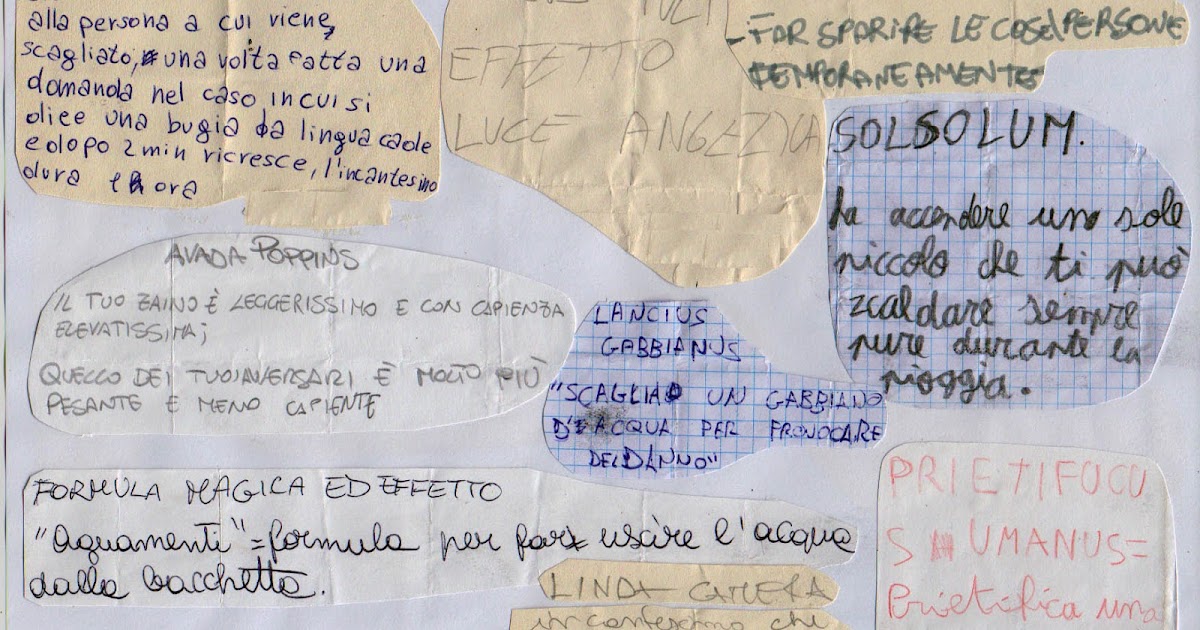 alla persona a cui viene
scagliato, una volta fatta una
domanda nel caso in cui si
dice una bugia la lingua cade
e dopo 2 min ricresce, l'incantesimo
dura ora
EFFETTO
LUCE ANGELICA
-FAR SPARIRE LE COSE/PERSONE
TEMPORANEAMENTE
SOLSOLUM.
fa accendere uno sole
piccolo che ti può
zcaldare sempre
pure durante la
pioggia.
AVADA POPPINS
IL TUO ZAINO È LEGGERISSIMO E CON CAPIENZA
ELEVATISSIMA;
QUELLO DEI TUOI AVERSARI È MOLTO PIÙ
PESANTE E MENO CAPIENTE
LANCIUS
GABBIANUS
"SCAGLIA UN GABBIANO
D'ACQUA PER PROVOCARE
DEL DANNO"
FORMULA MAGICA ED EFFETTO
"Aguamenti"=formula per far uscire l'acqua
dalla bacchetta.
LINDA
incantesimo che
PRIETIFOCU
S UMANUS=
Prietifica una